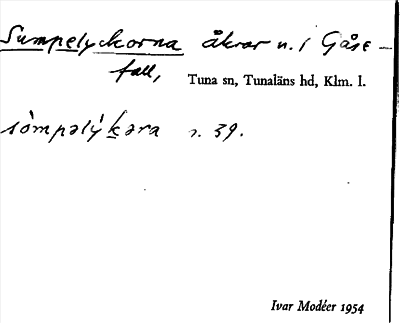 Sumpelyckorna åkrar n. 1 Gåse-
fall, Tuna sn, Tunaläns hd, Klm. l.
sòmpəlý kəra s. 39.
Ivar Modéer 1954